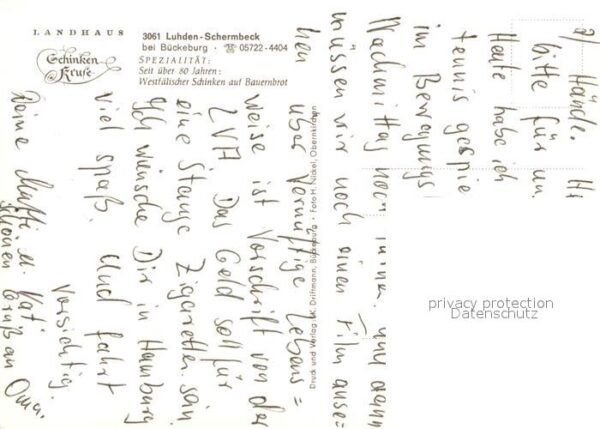 LANDHAUS
Schinken
Kruse
3061 Luhden-Schermbeck
bei Bückeburg · ☏ 05722-4404
SPEZIALITÄT:
Seit über 80 Jahren:
Westfälischer Schinken auf Bauernbrot
Druck und Verlag: K. Driftmann, Bückeburg · Foto H. Nickel, Obernkirchen
Hände.
bitte für un
Heute habe ich
tennis gespie
im Bewegungs
Nachmittag noch und dann
müssen wir noch einen Film anse=
hen über Vernünftige Lebens=
weise ist Vorschrift von der
LVA Das Geld soll für
eine Stange Zigaretten sein
Ich wünsche Dir in Hamburg
viel spaß. Und fahrt
vorsichtig.
Deine Mutti u. Vati
schönen Gruß an Oma.
privacy protection
Datenschutz